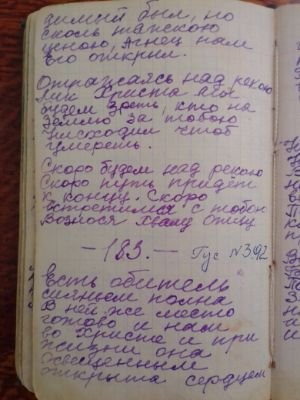 зимий был, но
сколь тапскою
ценою, Агнец нам
Его открыл.
Отражаясь над рекою
Лик Христа мы
будем зреть, кто на
Землю за тобою
нисходил чтоб
умереть.
Скоро будем над рекою
Скоро путь придёт
к концу. Скоро
с тобой
Вознося Хвалу Отцу
-183.- Гус №392
Есть обитель
сияньем полна
В ней же место
готово и нам
во Христе и при
жизни она
освещенным
открыта сердцем